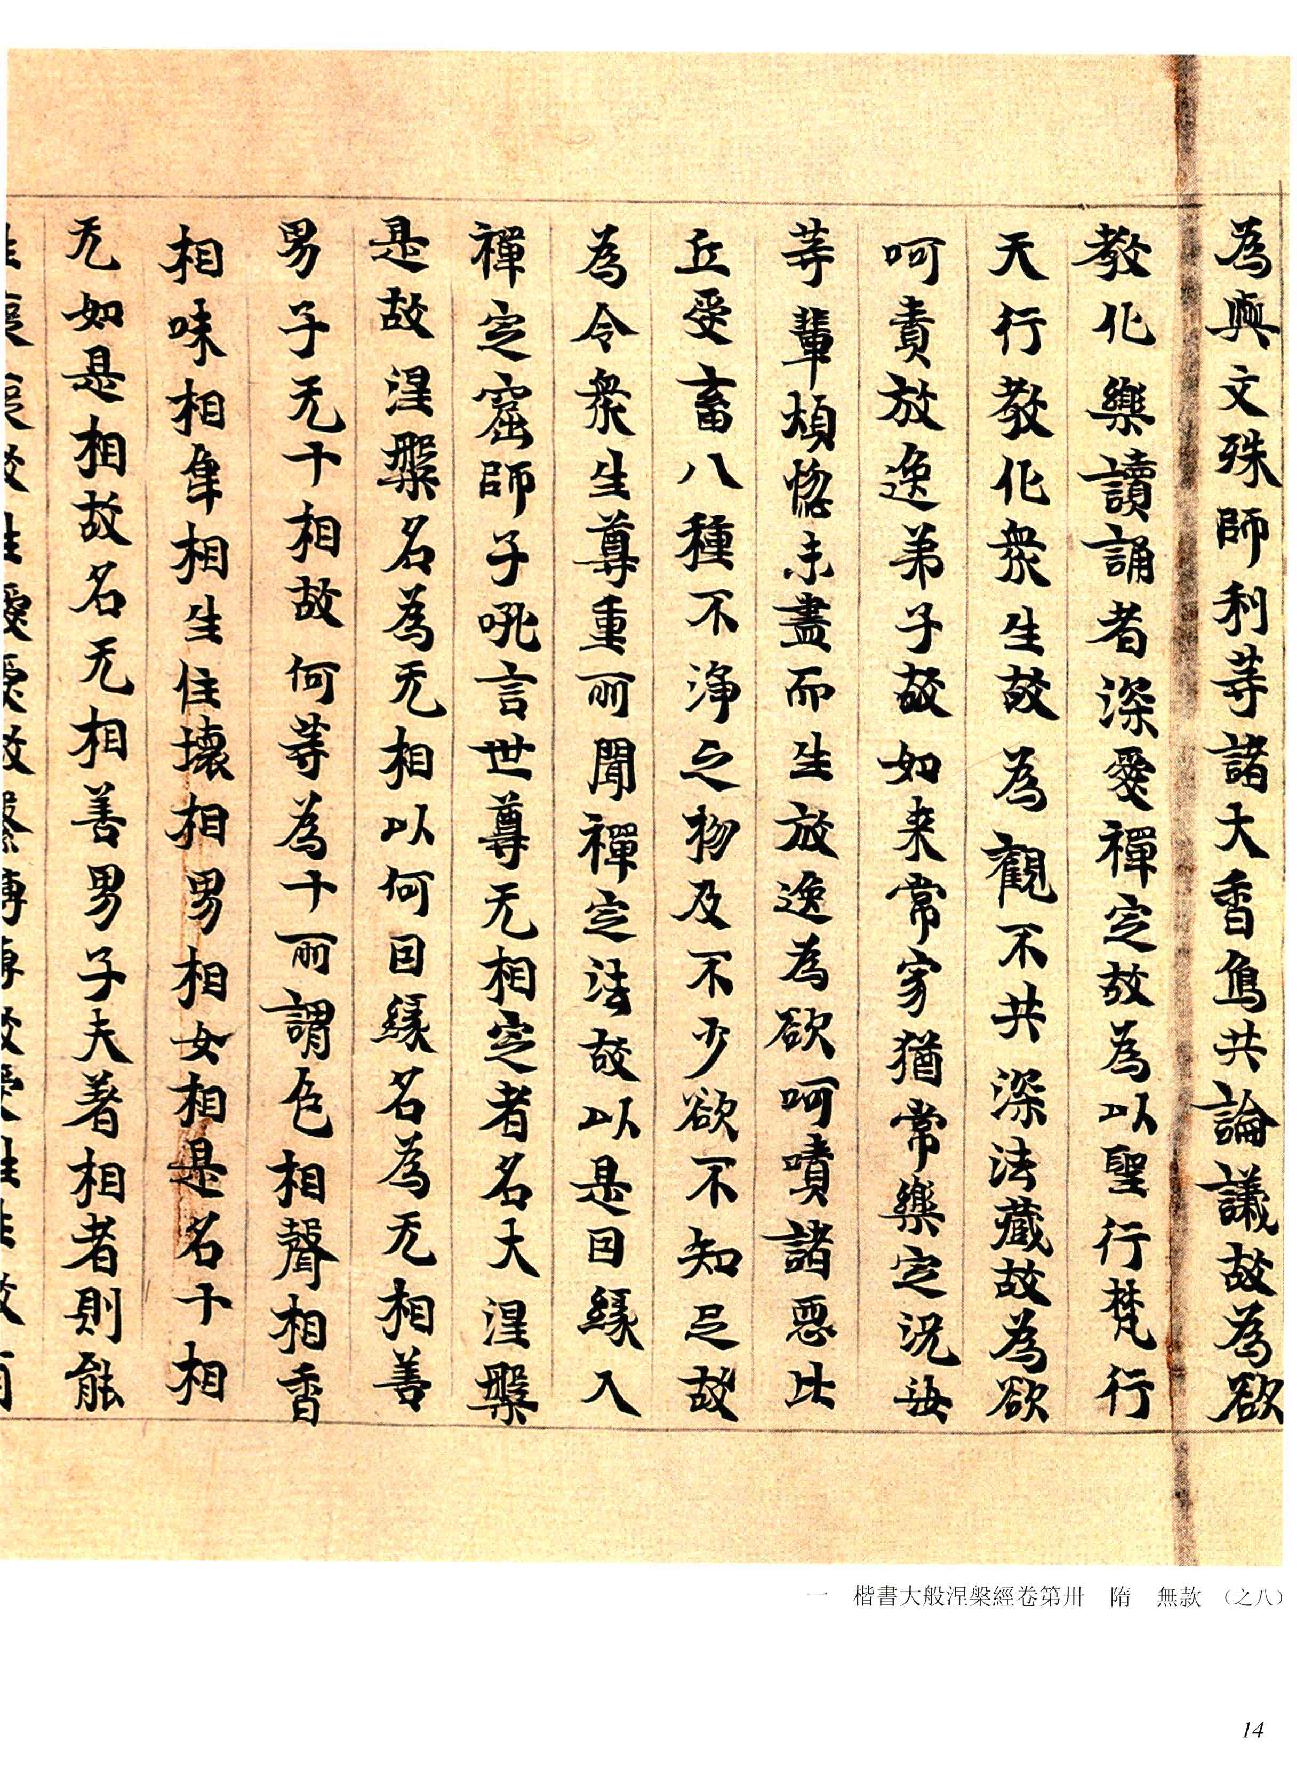 為與文殊師利等諸大香鳥共論議故為欲
教化樂讀誦者深愛禪定故為以聖行梵行
天行教化衆生故為觀不共深法藏故為欲
呵責放逸弟子故如来常寂猶常樂定況汝
等輩煩惱未盡而生放逸為欲呵嘖諸惡比
丘受畜八種不淨之物及不少欲不知足故
為令衆生尊重所聞禪定法故以是因緣入
禪定窟師子吼言世尊无相定者名大涅槃
是故涅槃名為无相以何因緣名為无相善
男子无十相故何等為十所謂色相聲相香
相味相觸相生住壞相男相女相是名十相
无如是相故名无相善男子夫著相者則能
一 楷書大般涅槃經卷第卅 隋 無款 （之八）
14